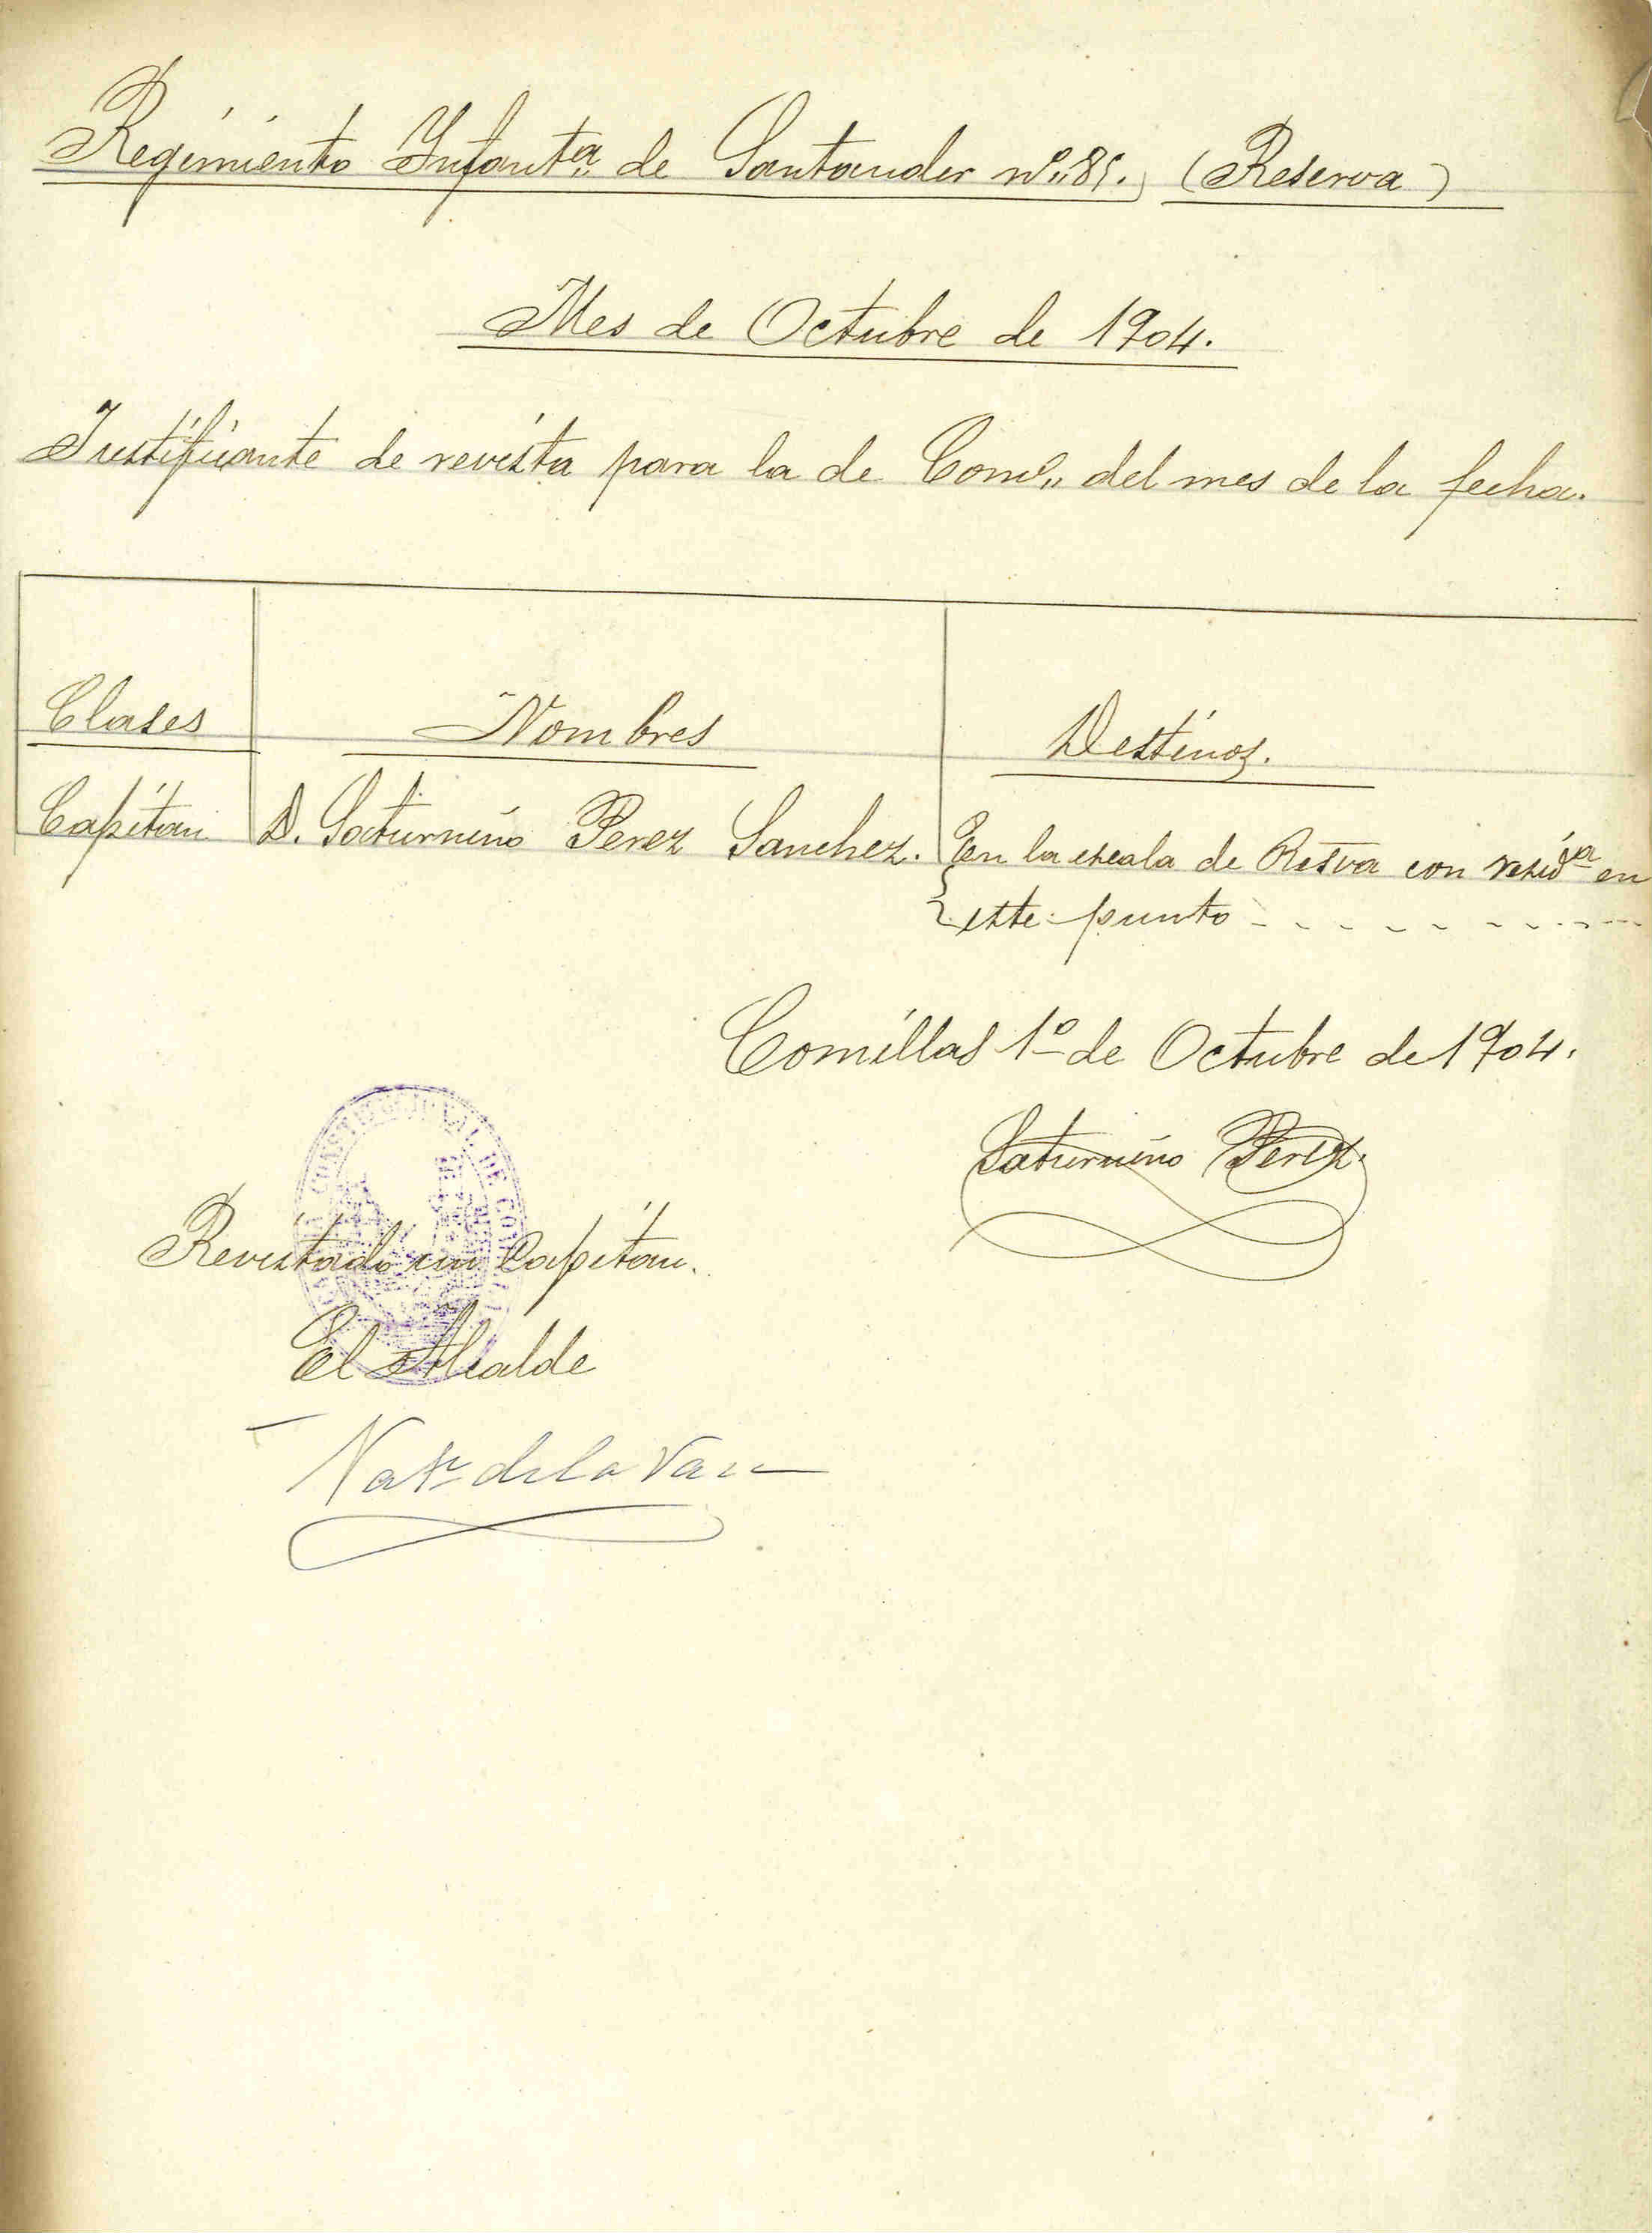 Regimiento Infantª de Santander nº 85. (Reserva)
Mes de Octubre de 1904.
Justificante de revista para la de Comº del mes de la fecha.
Clases Nombres Destinos.
Capitan D. Saturnino Perez Sanchez. En la escala de Resva con residª en
este punto
Comillas 1º de Octubre de 1904.
Saturnino Perez.
CONSTITUCIONAL DE
Revistado un Capitan.
El Alcalde
de la